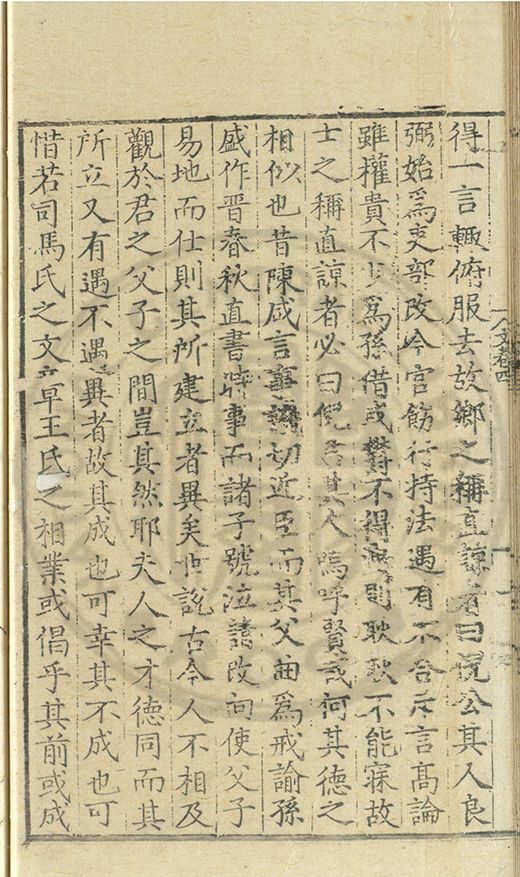 得一言輙俯服去故鄉之稱直諒者曰倪公其人良
弼始爲吏部改今官飭行持法遇有不合斥言髙論
雖權貴不少爲孫借或鬱不得則耿耿不能寐故
士之稱直諒者必曰倪其人嗚呼賢哉何其德之
相似也昔陳咸言事譏切近臣而其父爲戒諭孫
盛作晋春秋直書時事而諸子號泣請改向使父子
易地而仕則其所建立者異矣世説古今人不相及
觀於君之父子之間豈其然耶夫人之才德同而其
所立又有遇不遇異者故其成也可幸其不成也可
惜若司馬氏之文章王氏之相業或倡乎其前或成